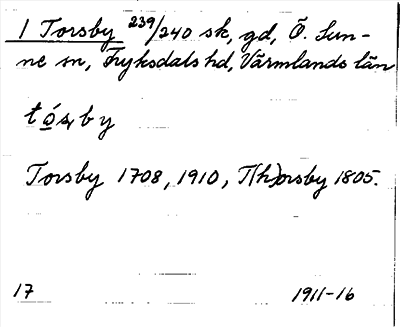 1 Torsby 239/240 sk, gd, Ö. Sun-
ne sn, Fryksdals hd, Värmlands län
tó̱s̨by
Torsby 1708, 1910, T(h)orsby 1805.
17 1911-16